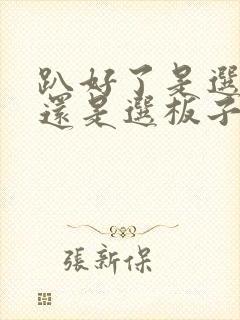 趴好了是選
還是選板子
張新保